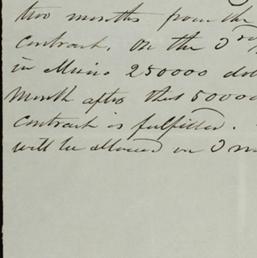 two months from the
contract. On the 3rd
in Mexico 250000 dol
month after that 50000
contract is fulfilled.
will be allowed on 3 m